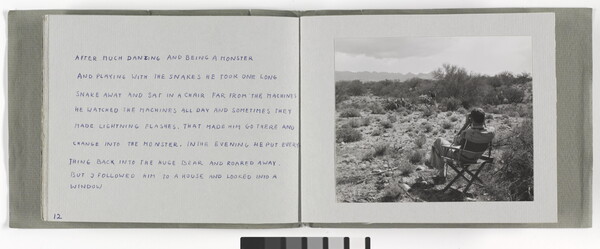 AFTER MUCH DANZING AND BEING A MONSTER
AND PLAYING WITH THE SNAKES HE TOOK ONE LONG
SNAKE AWAY AND SAT IN A CHAIR FAR FROM THE MACHINES
HE WATCHED THE MACHINES ALL DAY AND SOMETIMES THEY
MADE LIGHTNING FLASHES. THAT MADE HIM GO THERE AND
CHANGE INTO THE MONSTER. IN THE EVENING HE PUT EVERY
THING BACK INTO THE HUGE BEAR AND ROARED AWAY.
BUT I FOLLOWED HIM TO A HOUSE AND LOOKED INTO A
WINDOW
12